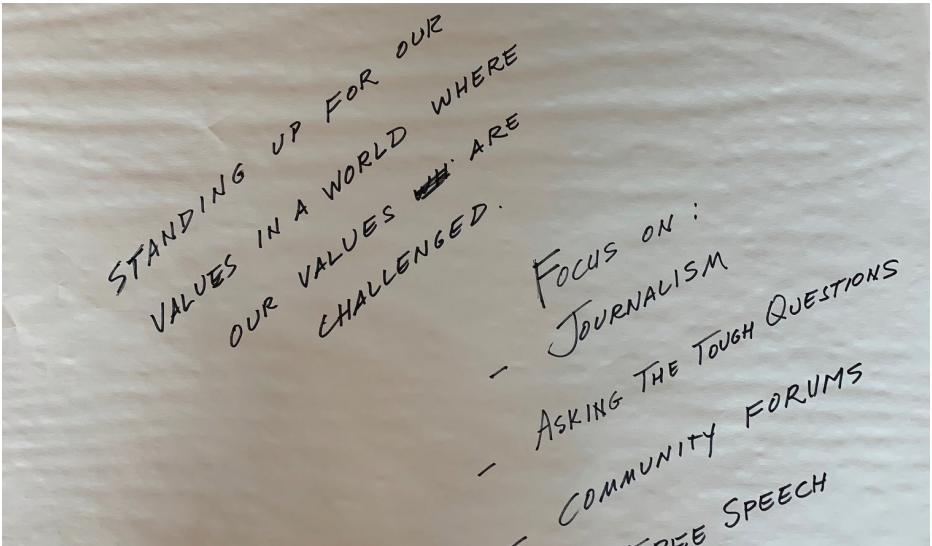 STANDING UP FOR OUR
VALUES IN A WORLD WHERE
OUR VALUES ARE
CHALLENGED.
FOCUS ON:
- JOURNALISM
- ASKING THE TOUGH QUESTIONS
- COMMUNITY FORUMS
FREE SPEECH